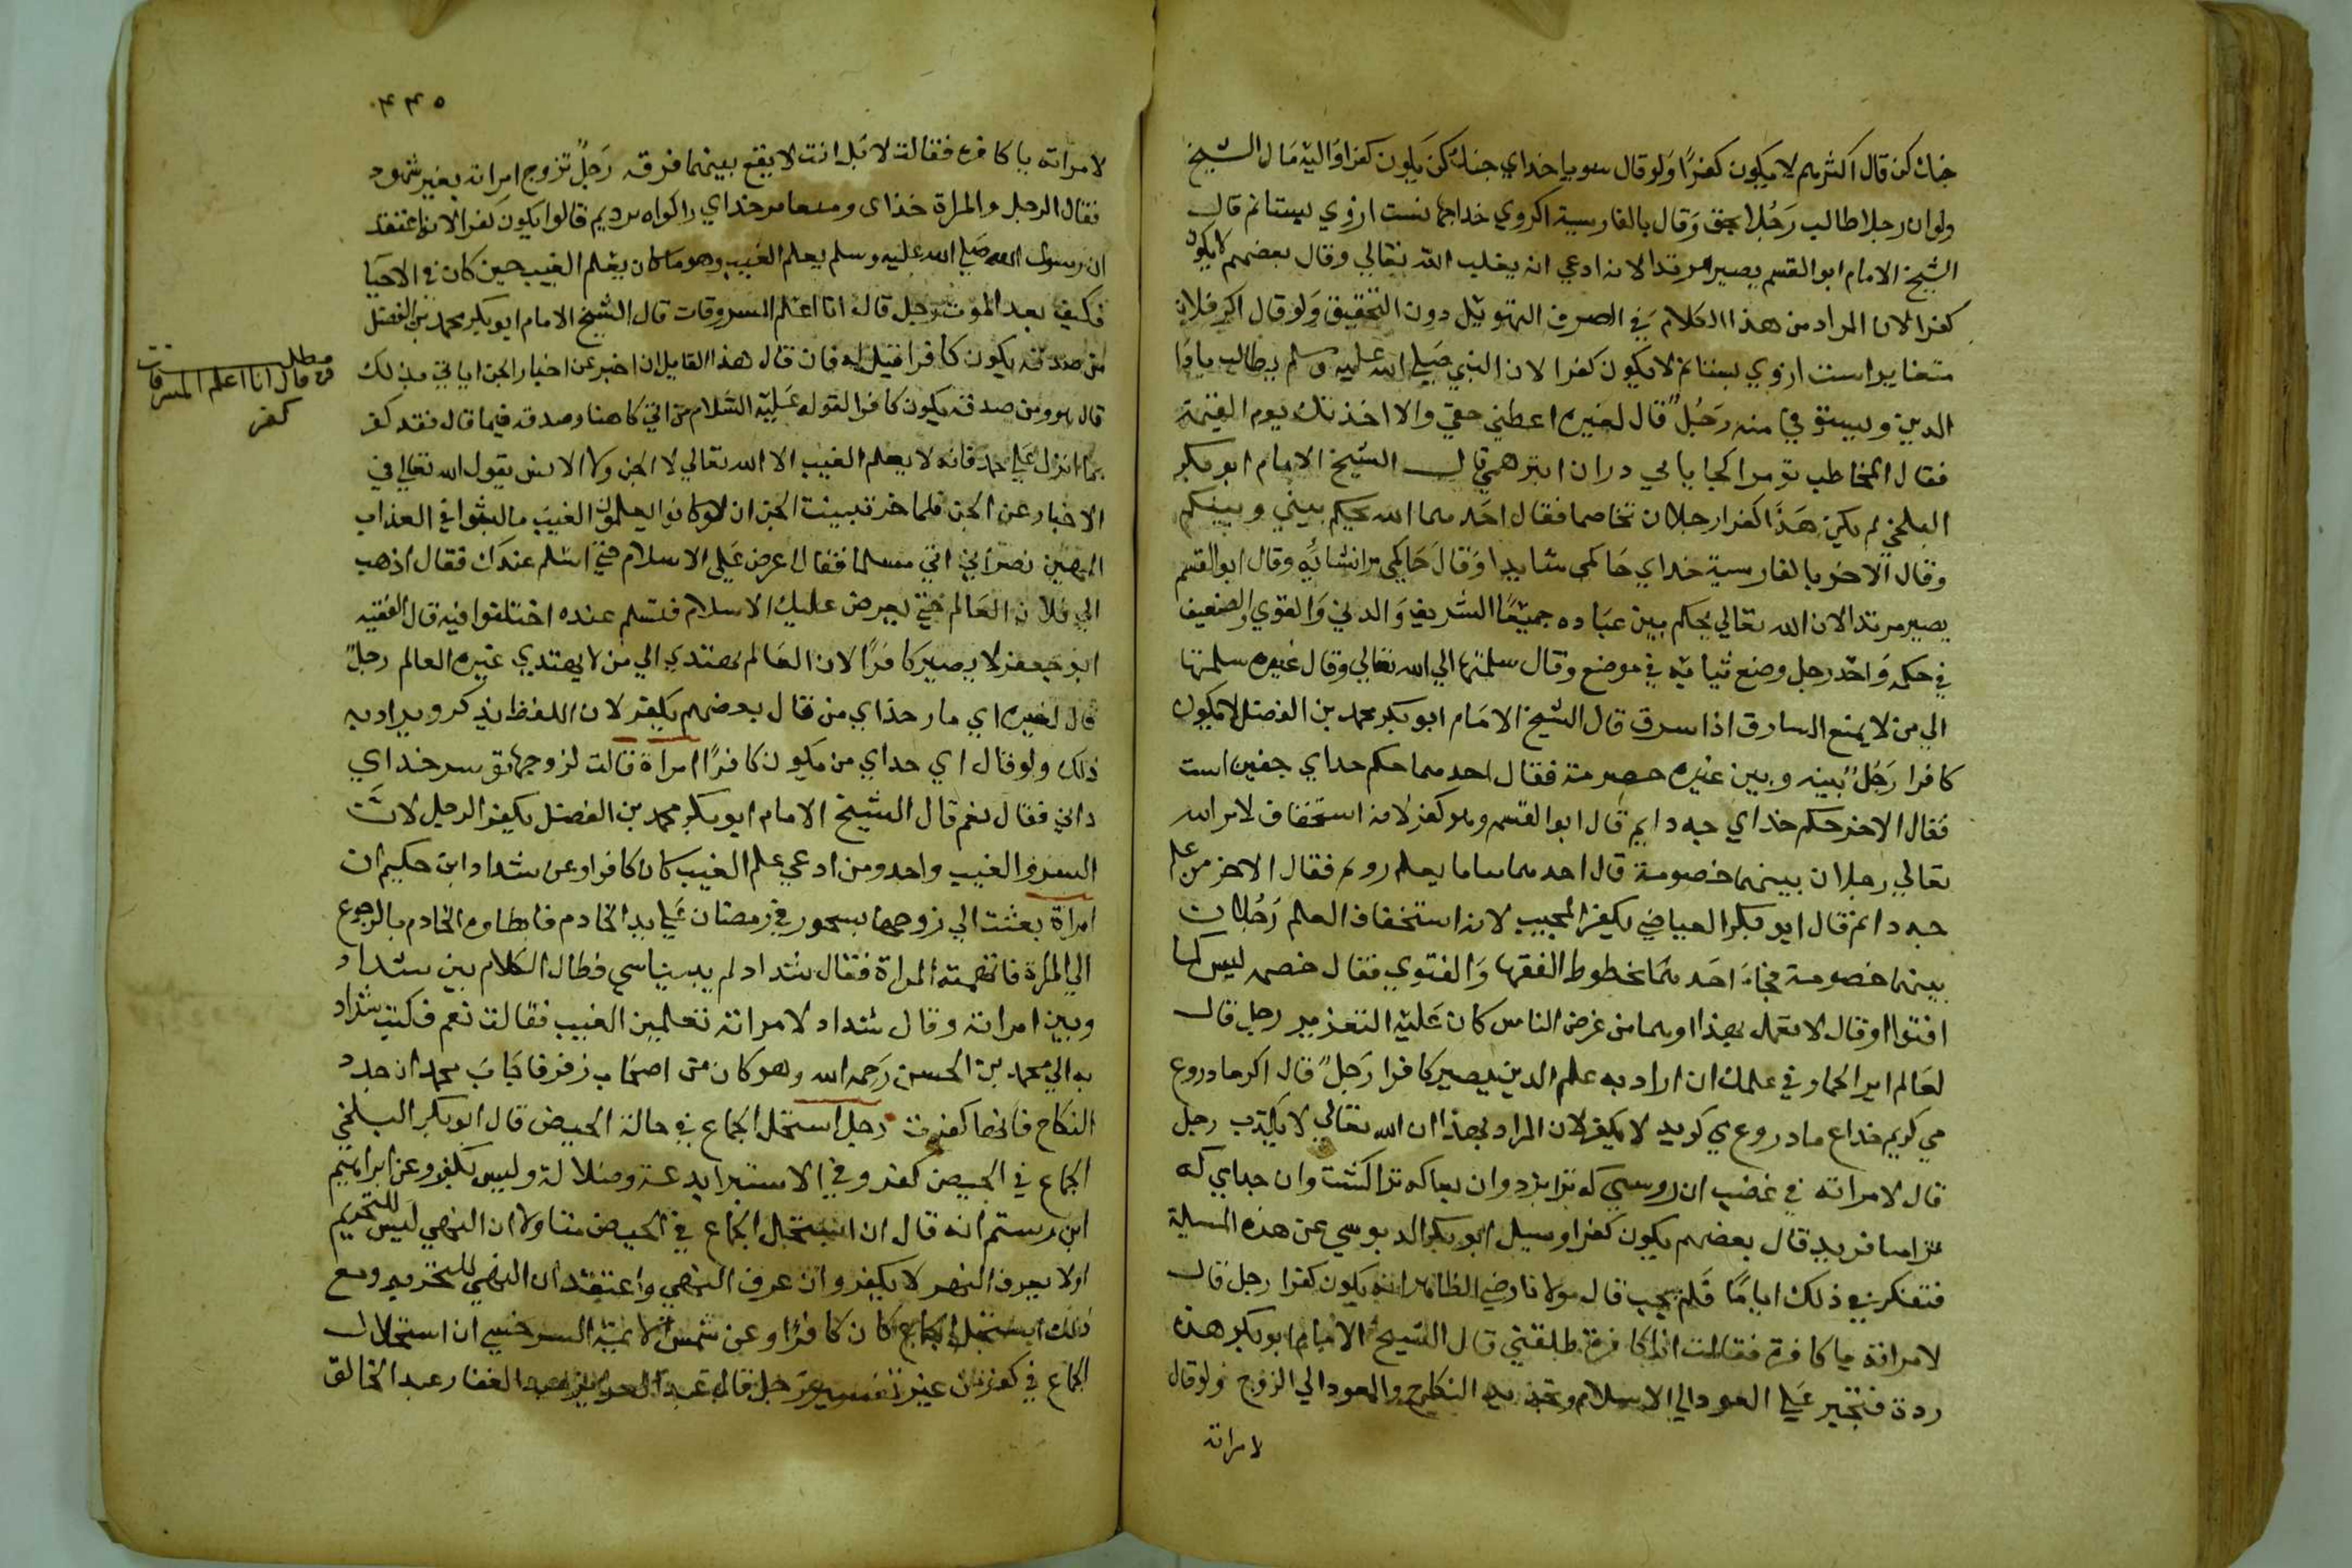 خنان كن قال اكثرهم لا يكون كفرًا ولو قال سويا خداي جنك كن يكون كفرا واليه مال الشيخ
ولو ان رجلا طالب رَجُلا بحق وقال بالفارسية اكروي خداجهانست ازوي بستانم قال
الشيخ الامام ابو القسم يصير مرتدا لانه ادعي انه يغلب الله تعالي وقال بعضهم لا يكون
كفرا لان المراد من هذا الكلام في الصرف التهويل دون التحقيق ولو قال اكر فلان
است ازوي بستانم لا يكون كفرا لان النبي صلي الله عليه وسلم يطالب باداء
الدين ويستوفي منه رَجُلٌ قال لغيره اعطني حقي والا اخذتك يوم القيمة
فقال المخاطب تو مرا كجا يابي دران انبوهي قال الشيخ الامام ابو بكر
البلخي لم يكن هَذا كفرا رجلان تخاصما فقال احدهما الله يحكم بيني وبينكم
وقال الاخر بالفارسية خداي حاكمي شايد او قال حاكمي را نشايد وقال ابو القسم
يصير مرتدا لان الله تعالي يحكم بين عباده جميعًا الشريف والدني والقوي والضعيف
في حكمه واحد رجل وضع ثيابه في موضع وقال سلمتها الي الله تعالي وقال غيره سلمتها
الي من لا يمنع السارق اذا سرق قال الشيخ الامام ابو بكر محمد بن الفضل لا يكون
كافرا رَجُلٌ بينه وبين غيره خصومة فقال احدهما حكم خداي جنين است
فقال الاخر حكم خداي جه دانم قال ابو القسم وهو كفر لانه استخفاف لامر الله
تعالي رجلان بينهما خصومة قال احدهما بيا ما بعلم رويم فقال الاخر من علم
جه دانم قال ابو بكر العياضي يكفر المجيب لانه استخفاف العلم رَجُلان
بينهما خصومة فجاء احدهما بخطوط الفقها والفتوي فقال خصمه ليس كما
افتوا او قال لا تعمل بهذا وهما من عرض الناس كان عليه التعزير رجل قال
لعالم اير الحمار في علمك ان اراد به علم الدين يصير كافرا رَجلٌ قال اكر ما دروغ
مي كويم خداع ما دروغ مي كويد لا يكفر لان المراد بهذا ان الله تعالي لا يكذب رجل
قال لامراته في غضب ان روسبي كه ترا بزاد وان كه ترا كشت وان خداي كه
ترا بيافريد قال بعضهم يكون كفرا وسيل ابو بكر الدبوسي عن هذه المسيلة
فتفكر في ذلك اياما فلم يجب قال مولانا رضي الظاهر انه يكون كفرا رجل قال
لامراته يا كافرة فقالت انا كافرة طلقني قال الشيخ الامام ابو بكر هذه
ردة فتجبر علي العود الي الاسلام وتجديد النكاح والعود الي الزوج ولو قال
لامراته
٤٤٥
لامراته يا كافرة فقالت لا بل انت لا يقع بينهما فرقه رَجلٌ تزوج امراته بغير شهود
فقال الرجل والمراة خذاى وبيغامبر خداي را كواه كرديم قالوا يكون كفرا لانه اعتقد
ان رسول الله صلي الله عليه وسلم يعلم الغيب وهو ما كان يعلم الغيب حين كان في الاحيا
فكيف بعد الموت رجل قال انا اعلم المسروقات قال الشيخ الامام ابو بكر محمد بن الفضل
من صدقه يكون كافرا قيل له فان قال هذا القايل ان اخبر عن اخبار الجن اياي بذلك
قال هو ومن صدقه يكون كافرا لقوله عليه السلام من اتي كاهنا وصدقه فيما قال فقد كفر
بما انزل علي محمد فانه لا يعلم الغيب الا الله تعالي لا الجن ولا الانس يقول الله تعالي في
الاخبار عن الجن فلما خر تبينت الجن ان لو كانوا يعلمون الغيب ما لبثوا في العذاب
المهين نصراني اتي مسلما فقال اعرض علي الاسلام حتي اسلم عندك فقال اذهب
الي فلان العالم حتي يعرض عليك الاسلام فتسلم عنده اختلفوا فيه قال الفقيه
ابو جعفر لا يصير كافرًا لان العالم يهتدي الي من لا يهتدي غيره العالم رجلٌ
قال لغيره اي مار خذاي من فقال بعضهم يكفر لان اللفظ يذكر ويراد به
ذلك ولو قال اي خداي من يكون كافرًا امراة قالت لزوجها تو سر خداي
داني فقال نعم قال الشيخ الامام ابو بكر محمد بن الفضل يكفر الرجل لان
السر والغيب واحد ومن ادعي علم الغيب كان كافرا وعن شداد ابن حكيم ان
امراة بعثت الي زوجها بسحور في رمضان علي يد الخادم فابطا وه الخادم بالرجوع
الي المراة فاتهمته المراة فقال شداد لم يد بيناسي فطال الكلام بين شداد
وبين امراته وقال شداد لامراته تعلمين الغيب فقالت نعم فكتب شداد
به الي محمد بن الحسن رَحمه الله وهو كان من اصحاب زفر فاجاب محمد ان جدد
النكاح فانها كفرت رجل استحل الجماع في حالة الحيض قال ابو بكر البلخي
الجماع في الحيض كفر وفي الاستبرا بدعة وضلالة وليس بكفر وعن ابراهيم
ابن رستم انه قال ان استحل الجماع في الحيض متاولا ان النهي ليس للتحريم
او لا يعرف النهي لا يكفر وان عرف النهي واعتقد ان النهي للتحريم ومع
ذلك استحل الجماع كان كافرا وعن شمس الايمة السرخسي ان استحلال
الجماع في كفر من غير تفسير رجل قال عبد العزيز عبد الغفار عبد الخالق
مطلب
من قال انا اعلم المسرقات
كفر